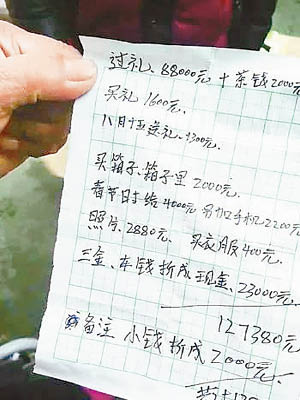 过礼、88000元 + 茶钱2000元
买礼 1600元、
八月十五送礼、1300元、
买箱子、箱子里 2000元、
春节时给4000元 另加手机2200元
照片、2880元、 买衣服400元、
三金、车钱折成现金、23000元、
127380元
备注 小钱折成2000元